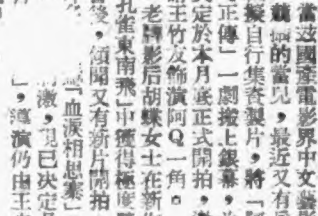 當玆國產電影界中女
競振的當兒，最近又有
擬自行集資製片，將「
正傳」一劇搬上銀幕，
定於本月底正式開拍，
請王竹友飾演阿Q一角。
老牌影后胡蝶女士在新
孔雀東南飛」中獲得極度
後，傾聞又有新片開拍
「血淚相思寨」
激，現已決定
」，導演仍由王